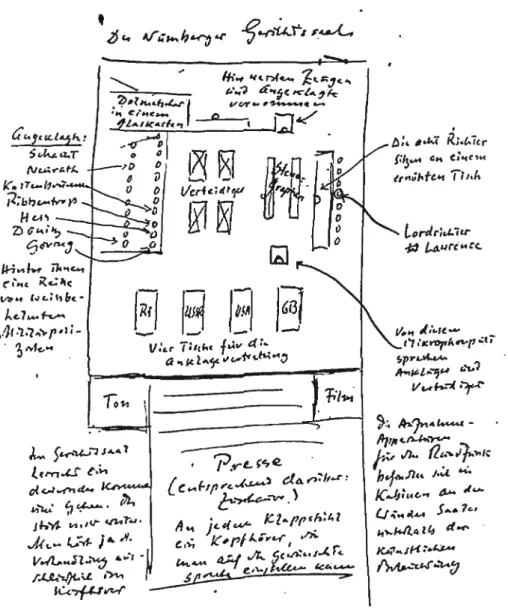 Der Nürnberger Gerichtssaal
Hier werden Zeugen
und Angeklagte
vernommen
Dolmetscher
in einem
Glaskasten
Angeklagte:
Schacht
Neurath
Kaltenbrunner
Ribbentrop
Hess
Dönitz
Göring
Hinter ihnen
eine Reihe
von weissbe-
helmten
Militärpoli-
zisten
Verteidiger
Steno-
graphen
Die acht Richter
sitzen an einem
erhöhten Tisch
Lordrichter
Lawrence
RF
USSR
USA
GB
Vier Tische für die
Anklagevertretung
Von diesem
Mikrophonpult
sprechen
Ankläger und
Verteidiger
Ton
Film
Presse
(entsprechend darüber:
Zuschauer)
An jedem Klappstuhl
ein Kopfhörer, den
man auf die gewünschte
Sprache einstellen kann
Im Gerichtssaal
herrscht ein
dauerndes Kommen
und Gehen. Es
stört nicht weiter.
Man hört ja d.
Verhandlung aus-
schließlich im
Kopfhörer
Die Aufnahme-
Apparaturen
für den Rundfunk
befinden sich in
Kabinen an den
Wänden Saales
unterhalb der
künstlichen
Beleuchtung